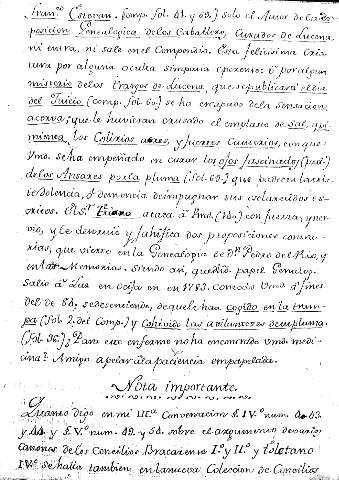 Fran.co Estevan. (Comp. fol. 41. y 69.) Solo el Autor de la
posicion Genealogica de los Caballeros Curados de Lucena,
ni entra, ni sale en el Compendio. Esta felicisima Cria
tura por alguna oculta simpatia oponente: ô por algun
misterio de los trazos de Lucena, que se publicará el dia
del Juicio (Comp. fol. 60.) se ha escapado de la
acerva; que le huvieran causado el emplasto de Sal,
los Colirios acres, y hierros Canterios, con que
Vmd. se ha empeñado en curar los ojos fascinados (Ibid.)
de los Ansares por la pluma (fol. 63.) que padecen la
te dolencia, ô demencia de impugnar sus esclarecidos es-
critos. Al S.r ataca â Vmd. (Ib.) con fuerza, y ner-
vio, y le desmiente y falsifica dos proposiciones contra-
rias, que vierte en la Genealogia de D.n Pedro del Rio, y
en las Memorias. Siendo asi, que dho. papel Genealog.
salio â Luz en Ecija en en 1783. Con todo Vmd. â fines
del de 84. se desentiende, de que le han cogido en la tram-
pa (fol. 2. del Comp.) y
(fol. 36.) Para este enfermo no ha encontrado Vmd. medi-
cina? Amigo apelar â la paciencia empapelada.
Nota importante.
Quanto digo en mi III.a Conversacion §. IV.o num. 43.
y 44. y §. V.o num. 49. y 54. sobre el argumento de varios
canones de los Concilios Bracarense I.o y II.o y Toletano
IV.o se halla tambien en la nueva Coleccion de Concilios